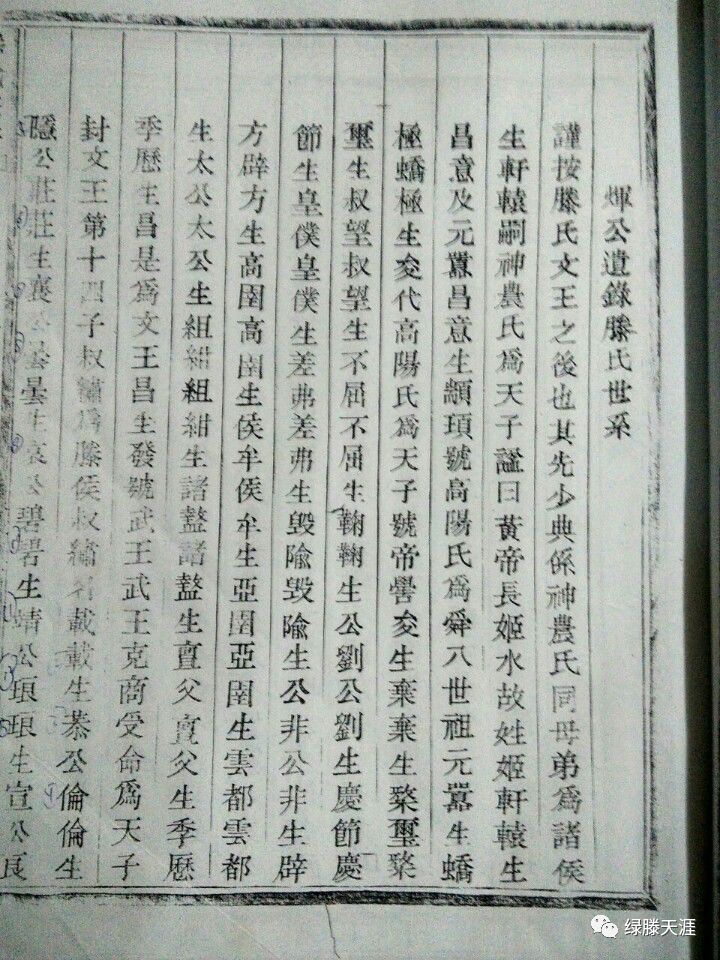 煇公遺錄滕氏世系
謹按滕氏文王之後也其先少典係神農氏同母弟為諸侯
生軒轅嗣神農氏為天子謚曰黃帝長姬水故姓姬軒轅生
昌意及元囂昌意生顓頊號高陽氏為舜八世祖元囂生蟜
極蟜極生夋代高陽氏為天子號帝嚳夋生棄棄生漦璽漦
璽生叔望叔望生不屈不屈生鞠鞠生公劉公劉生慶節慶
節生皇僕皇僕生差弗差弗生毀隃毀隃生公非公非生辟
方辟方生高圉高圉生侯牟侯牟生亞圉亞圉生雲都雲都
生太公太公生組紺組紺生諸盩諸盩生亶父亶父生季歷
季歷生昌是為文王昌生發號武王武王克商受命為天子
封文王第十四子叔繡為滕侯叔繡名載載生恭公倫倫生
隱公莊莊生襄公曇曇生哀公碧碧生靖公琅琅生宣公良
绿滕天涯